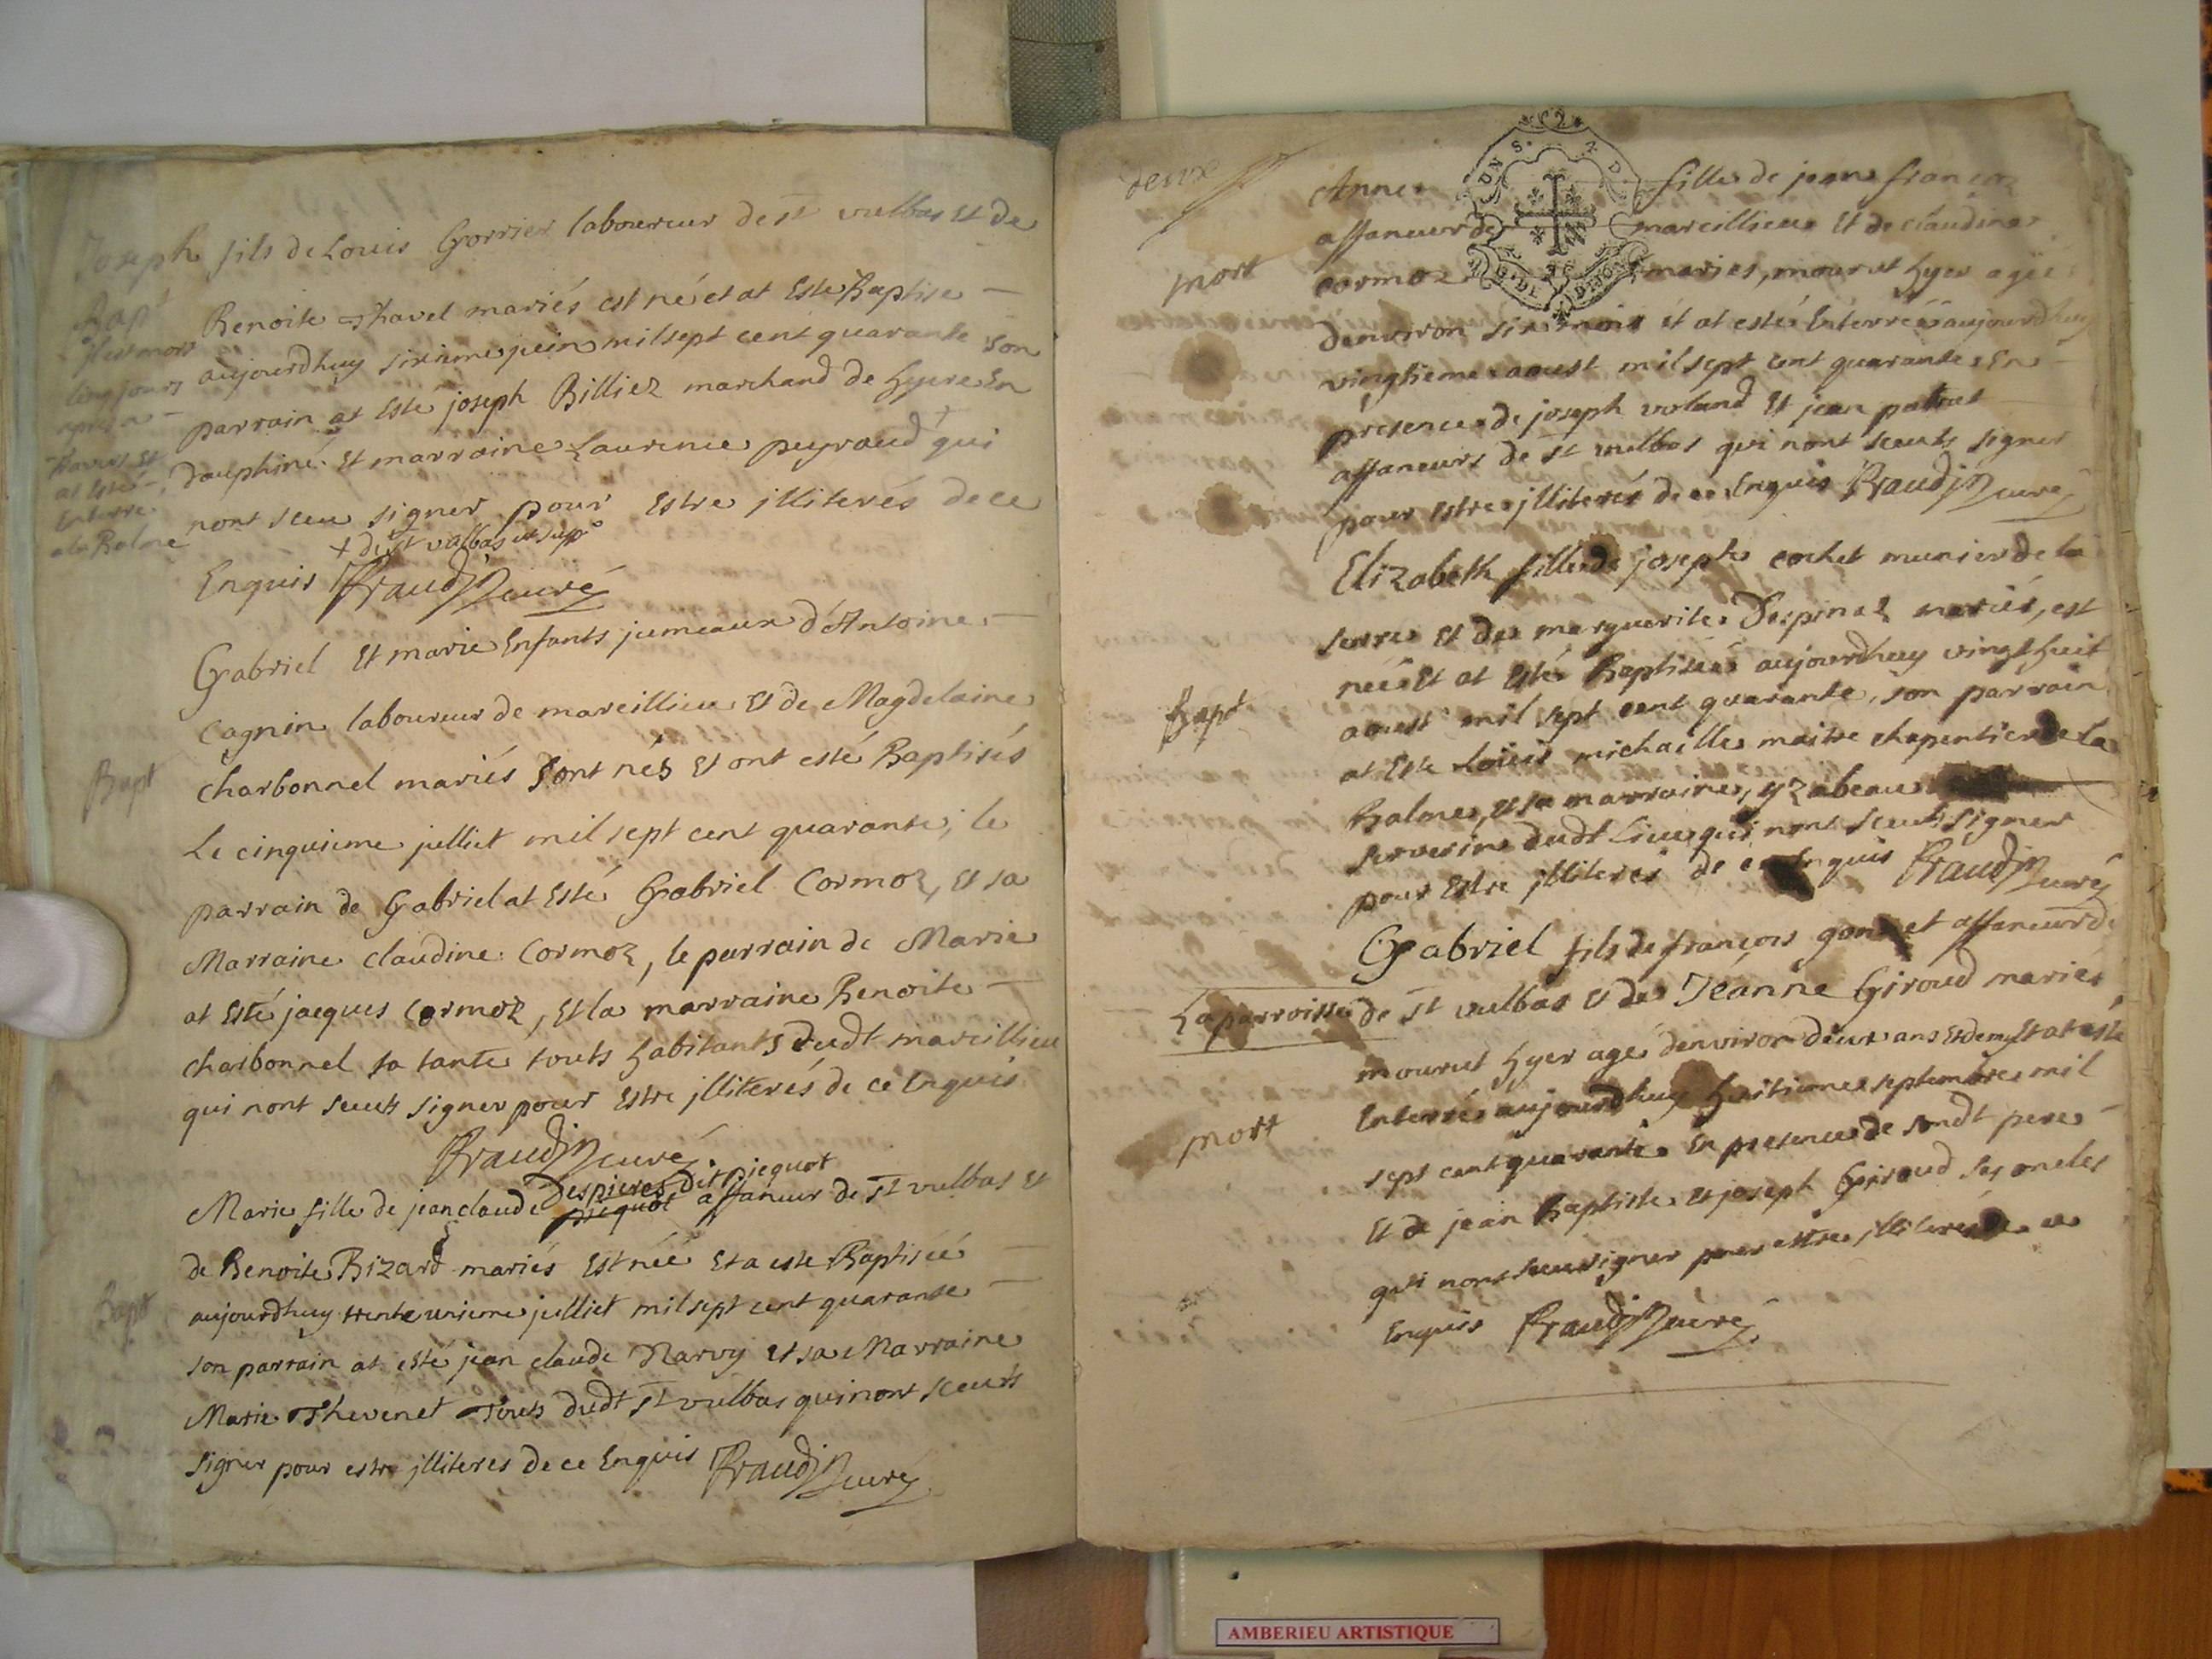 Joseph fils de Louis Gorrier laboureur de st vulbas et de
Benoite Thavel mariés est né et at Esté Baptise
aujourdhuy sixieme juin mil sept cent quarante son
parrain at Esté joseph Billiez marchand de hyere En
dauphiné et marraine Laurence peyraud + qui
nont sceu signer pour Estre jlliterés de ce
+ de st vulbas
Enquis Braudin curé
Bapt
il est mort
cinq jours
apres
at esté
Enterré
a la Balme
Gabriel Et marie Enfants jumeaux d'Antoine
Cagnin laboureur de mareillieu Et de Magdelaine
charbonnel mariés sont nés Et ont esté Baptisés
Le cinquieme julliet mil sept cent quarante, le
parrain de Gabriel at Esté Gabriel Cormoz, et sa
Marraine claudine Cormoz, le parrain de Marie
at Esté jacques Cormoz, Et la marraine Benoite
charbonnel sa tante touts habitants dudt mareillieu
qui nont sceuts signer pour Estre jlliterés de ce Enquis
Braudin curé
Bapt
Despieres dit piequot
Marie fille de jean claude piequot affaneur de st vulbas et
de Benoite Bizard mariés Est née Et a este Baptisée
aujourdhuy trente unieme julliet mil sept cent quarante
son parrain at esté jean claude Narvy et sa Marraine
Marie Thevenet Touts dudt st vulbas qui nont sceuts
signer pour estre jlliteres de ce Enquis Braudin curé
Bapt
deux
Anne fille de jean françois
affaneur de mareillieu Et de claudine
cormoz mariés, mourut hyer agée
denviron six mois et at esté Enterrée aujourdhuy
vingtieme aoust mil sept cent quarante En
presence de joseph voland Et jean patrut
affaneurs de st vulbas qui nont sceuts signer
pour estre jlliterés de ce Enquis Braudin curé
mort
Elizabeth fille de joseph cochet munier de la
serre Et de marguerite Despinaz mariés, est
née Et at Esté Baptisée aujourdhuy vingt huit
aoust mil sept cent quarante, son parrain
at Este Loüis michaille maitre chapentier de la
Balme, et sa marraine, yzabeau
serverine dudt Lieu qui nont sceuts signer
pour Estre jlliterés de ce Enquis Braudin curé
Bapt
Gabriel fils de françois gonnet affaneur de
La parroisse de st vulbas et de Jeanne Giroud mariés
mourut hyer agé denviron deux ans Et demy Et at esté
Enterré aujourdhuy huitieme septembre mil
sept cent quarante En presence de sondt pere
Et de jean Baptiste et joseph Giroud ses oncles
qui nont sceu signer pour estre jlliterés de ce
Enquis Braudin curé
mort
AMBERIEU ARTISTIQUE